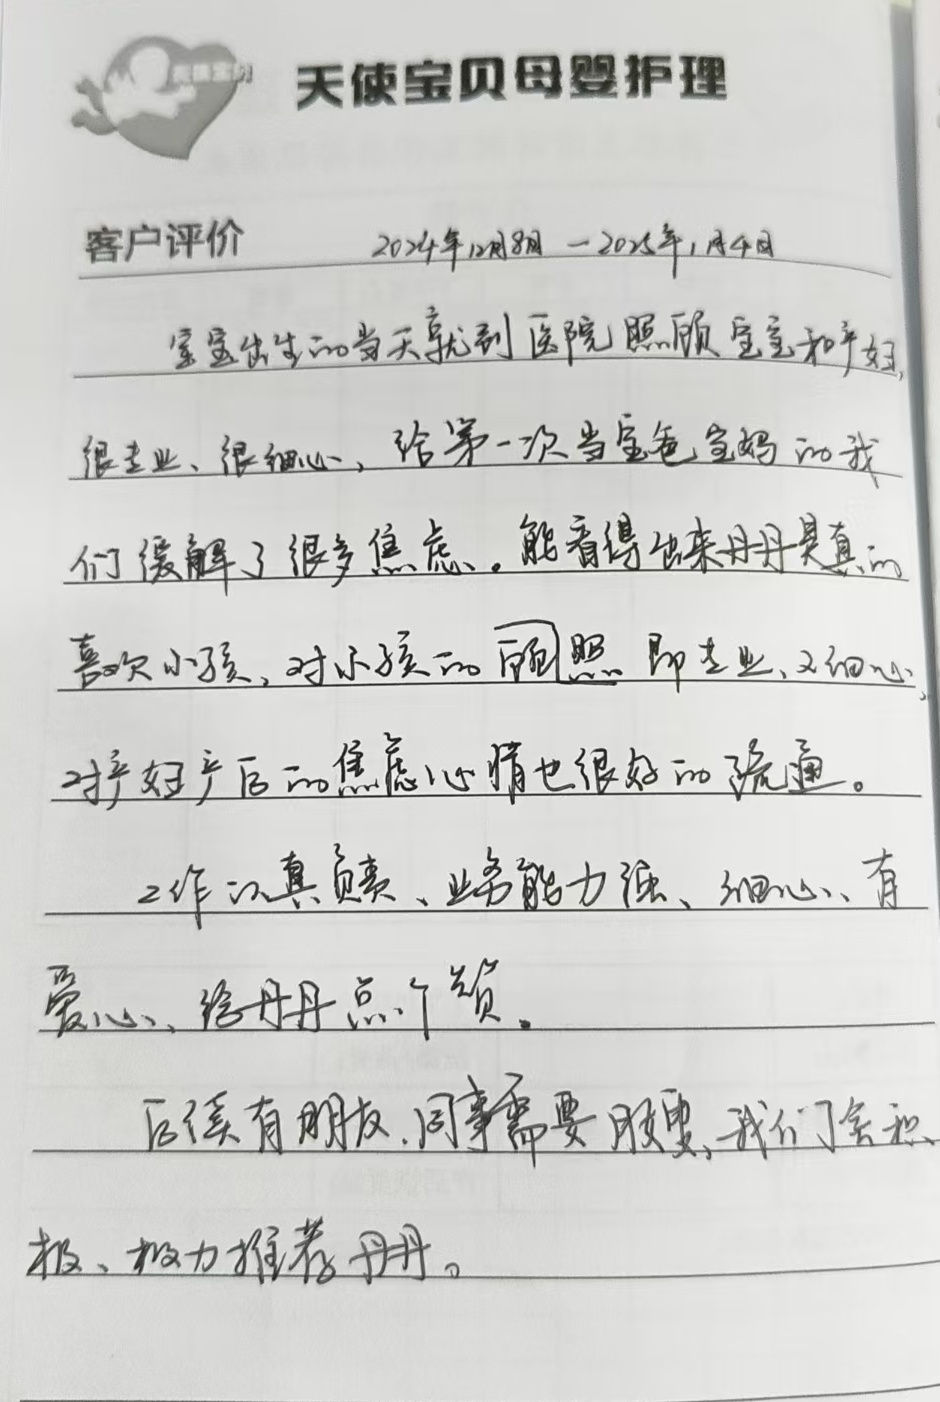 天使宝贝母婴护理
客户评价 2024年12月8日-2025年1月4日
宝宝出生的当天就到医院照顾宝宝和产妇,
很专业、很细心、给第一次当宝爸宝妈的我
们缓解了很多焦虑。能看得出来丹丹是真的
喜欢小孩、对小孩的顾照即专业、又细心,
对产妇产后的焦虑心情也很好的疏通。
工作认真负责、业务能力强、细心、有
爱心、给丹丹点个赞。
后续有朋友、同事需要服要、我们会积
极、极力推荐丹丹。